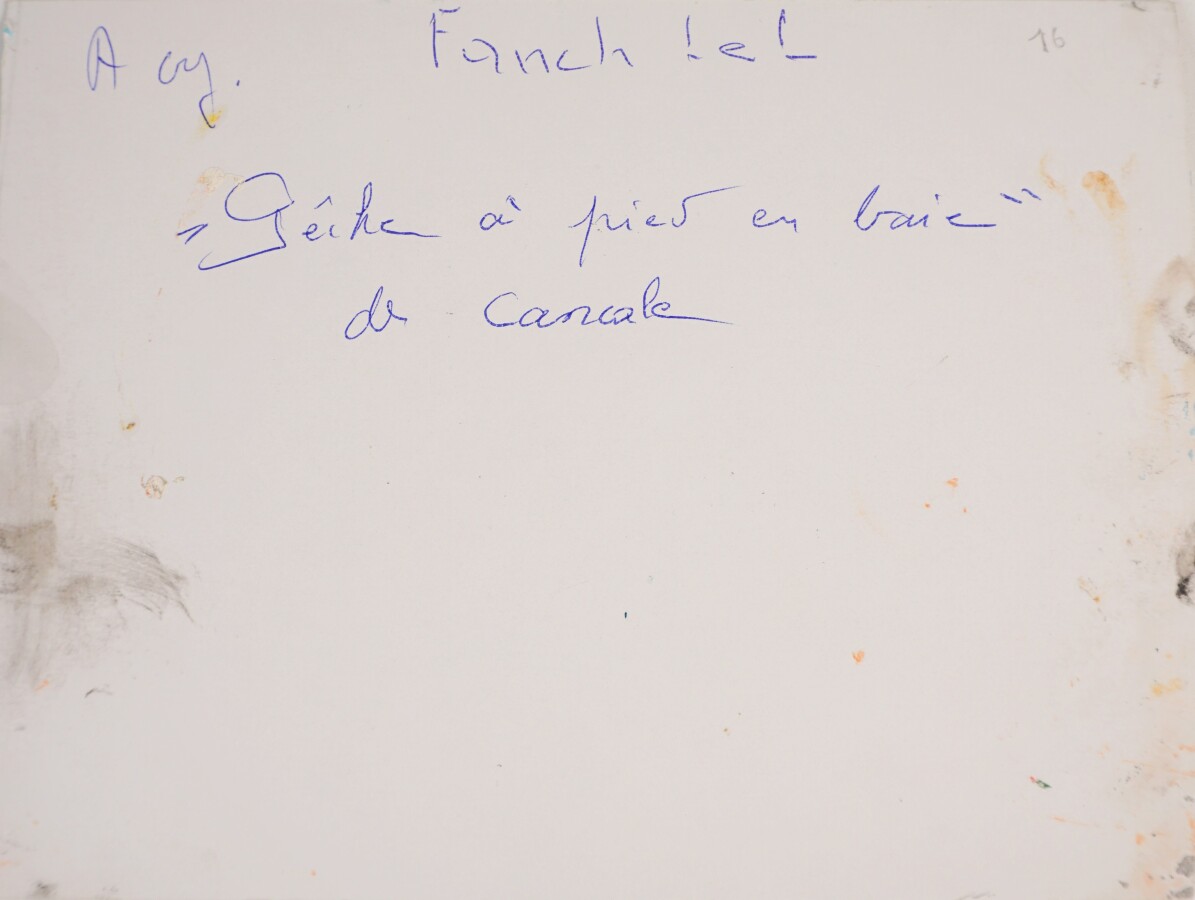 A cry. Fanch LeL 16
"Pêche à pied en baie"
de Cancale